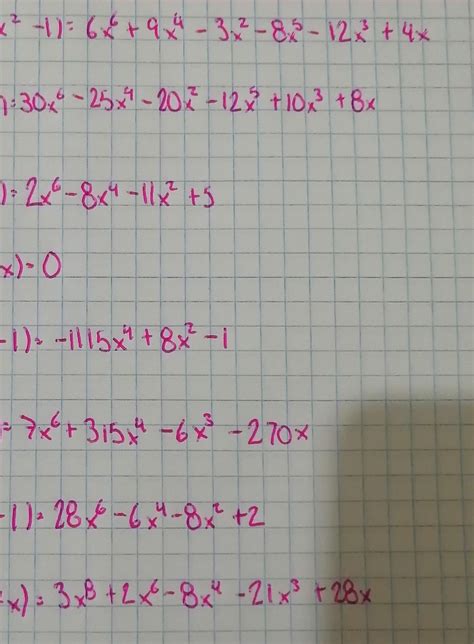 x² -1)= 6x⁶ + 9x⁴ - 3x² - 8x⁵ - 12x³ + 4x
)= 30x⁶ - 25x⁴ - 20x² - 12x⁵ + 10x³ + 8x
)= 2x⁶ - 8x⁴ - 11x² + 5
x)= 0
-1)= -1115x⁴ + 8x² - 1
= 7x⁶ + 315x⁴ - 6x³ - 270x
-1)= 28x⁶ - 6x⁴ - 8x² + 2
x)= 3x⁸ + 2x⁶ - 8x⁴ - 21x³ + 28x